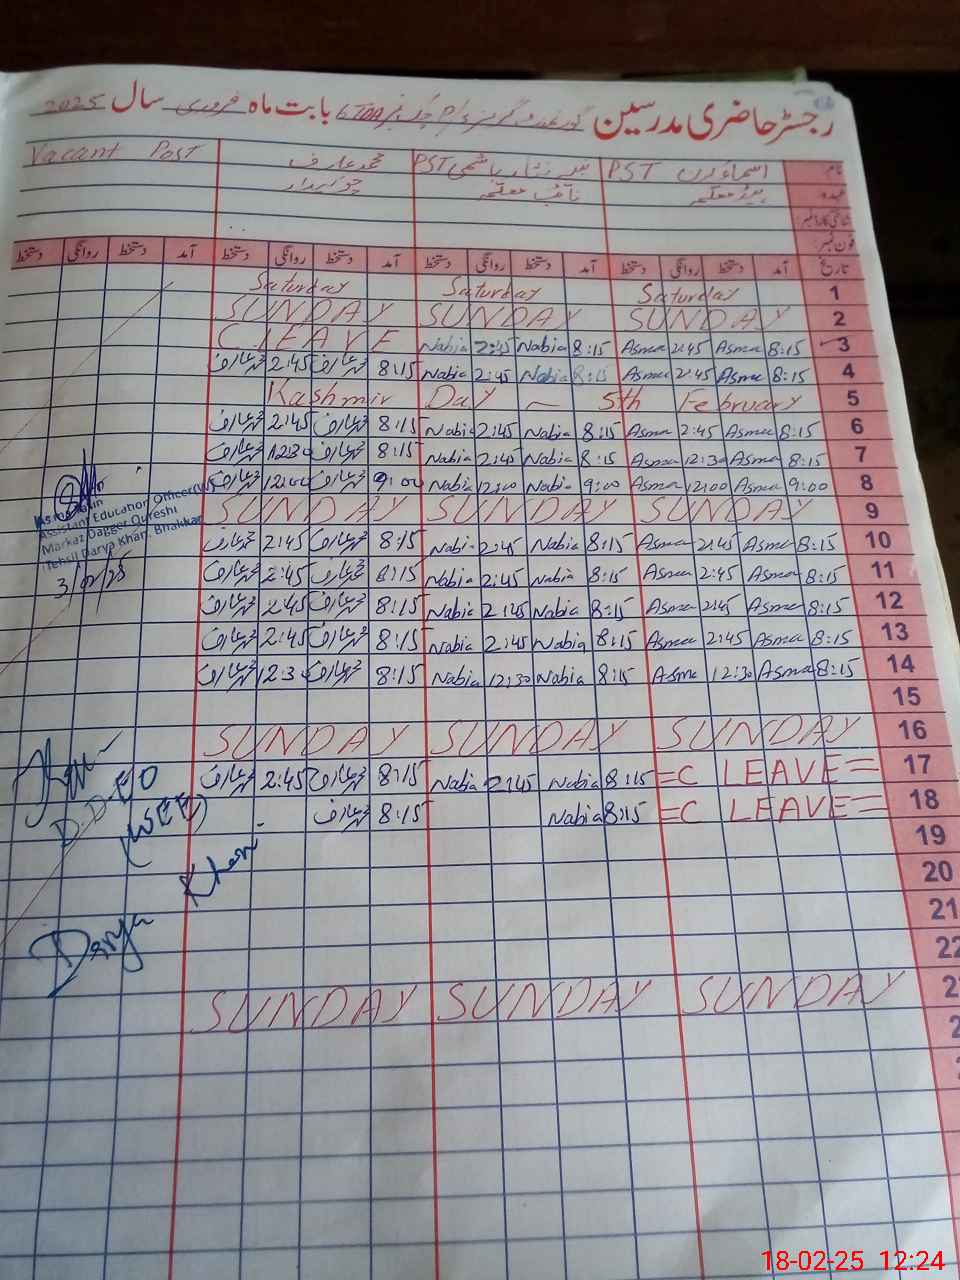 رجسٹر حاضری مدرسین بابت ماہ فروری سال 2025
نام اسماء PST PST محمد عارف Vacant Post
عہدہ ہیڈ معلمہ نائب معلمہ چوکیدار
شناختی کارڈ نمبر:
فون نمبر:
تاریخ آمد دستخط روانگی دستخط آمد دستخط روانگی دستخط آمد دستخط روانگی دستخط آمد دستخط روانگی دستخط
1 Saturday Saturday Saturday
2 SUNDAY SUNDAY SUNDAY
3 8:15 Asma 2:45 Asma 8:15 Nabia 2:45 Nabia C LEAVE
4 8:15 Asma 2:45 Asma 8:15 Nabia 2:45 Nabia 8:15 محمد عارف 2:45 محمد عارف
5 Kashmir Day – 5th February
6 8:15 Asma 2:45 Asma 8:15 Nabia 2:45 Nabia 8:15 محمد عارف 2:45 محمد عارف
7 8:15 Asma 12:30 Asma 8:15 Nabia 2:45 Nabia 8:15 محمد عارف 12:30 محمد عارف
8 9:00 Asma 12:00 Asma 9:00 Nabia 12:00 Nabia 9:00 محمد عارف 12:00 محمد عارف
9 SUNDAY SUNDAY SUNDAY
10 8:15 Asma 2:45 Asma 8:15 Nabia 2:45 Nabia 8:15 محمد عارف 2:45 محمد عارف
11 8:15 Asma 2:45 Asma 8:15 Nabia 2:45 Nabia 8:15 محمد عارف 2:45 محمد عارف
12 8:15 Asma 2:45 Asma 8:15 Nabia 2:45 Nabia 8:15 محمد عارف 2:45 محمد عارف
13 8:15 Asma 2:45 Asma 8:15 Nabia 2:45 Nabia 8:15 محمد عارف 2:45 محمد عارف
14 8:15 Asma 12:30 Asma 8:15 Nabia 12:30 Nabia 8:15 محمد عارف 12:30 محمد عارف
15
16 SUNDAY SUNDAY SUNDAY
17 =C LEAVE= 8:15 Nabia 2:45 Nabia 8:15 محمد عارف 2:45 محمد عارف
18 =C LEAVE= 8:15 Nabia 8:15 محمد عارف
19
20
21
22
SUNDAY SUNDAY SUNDAY
Assistant Education Officer(W)
Markaz Dagger Qureshi
Tehsil Darya Khan, Bhakkar
3/02/25
D.D-EO
(WEE)
Darya Khan
18-02-25 12:24